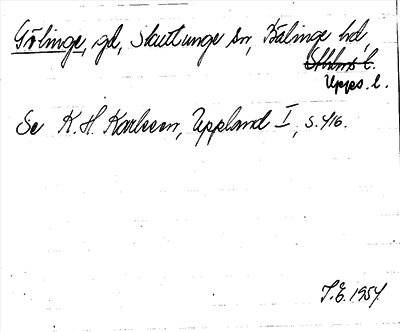 Gölinge, gd, Skuttunge sn, Bälinge hd
Sthlms l.
Upps. l.
Se K. H. Karlsson, Uppland I, s. 416.
J. E. 1954